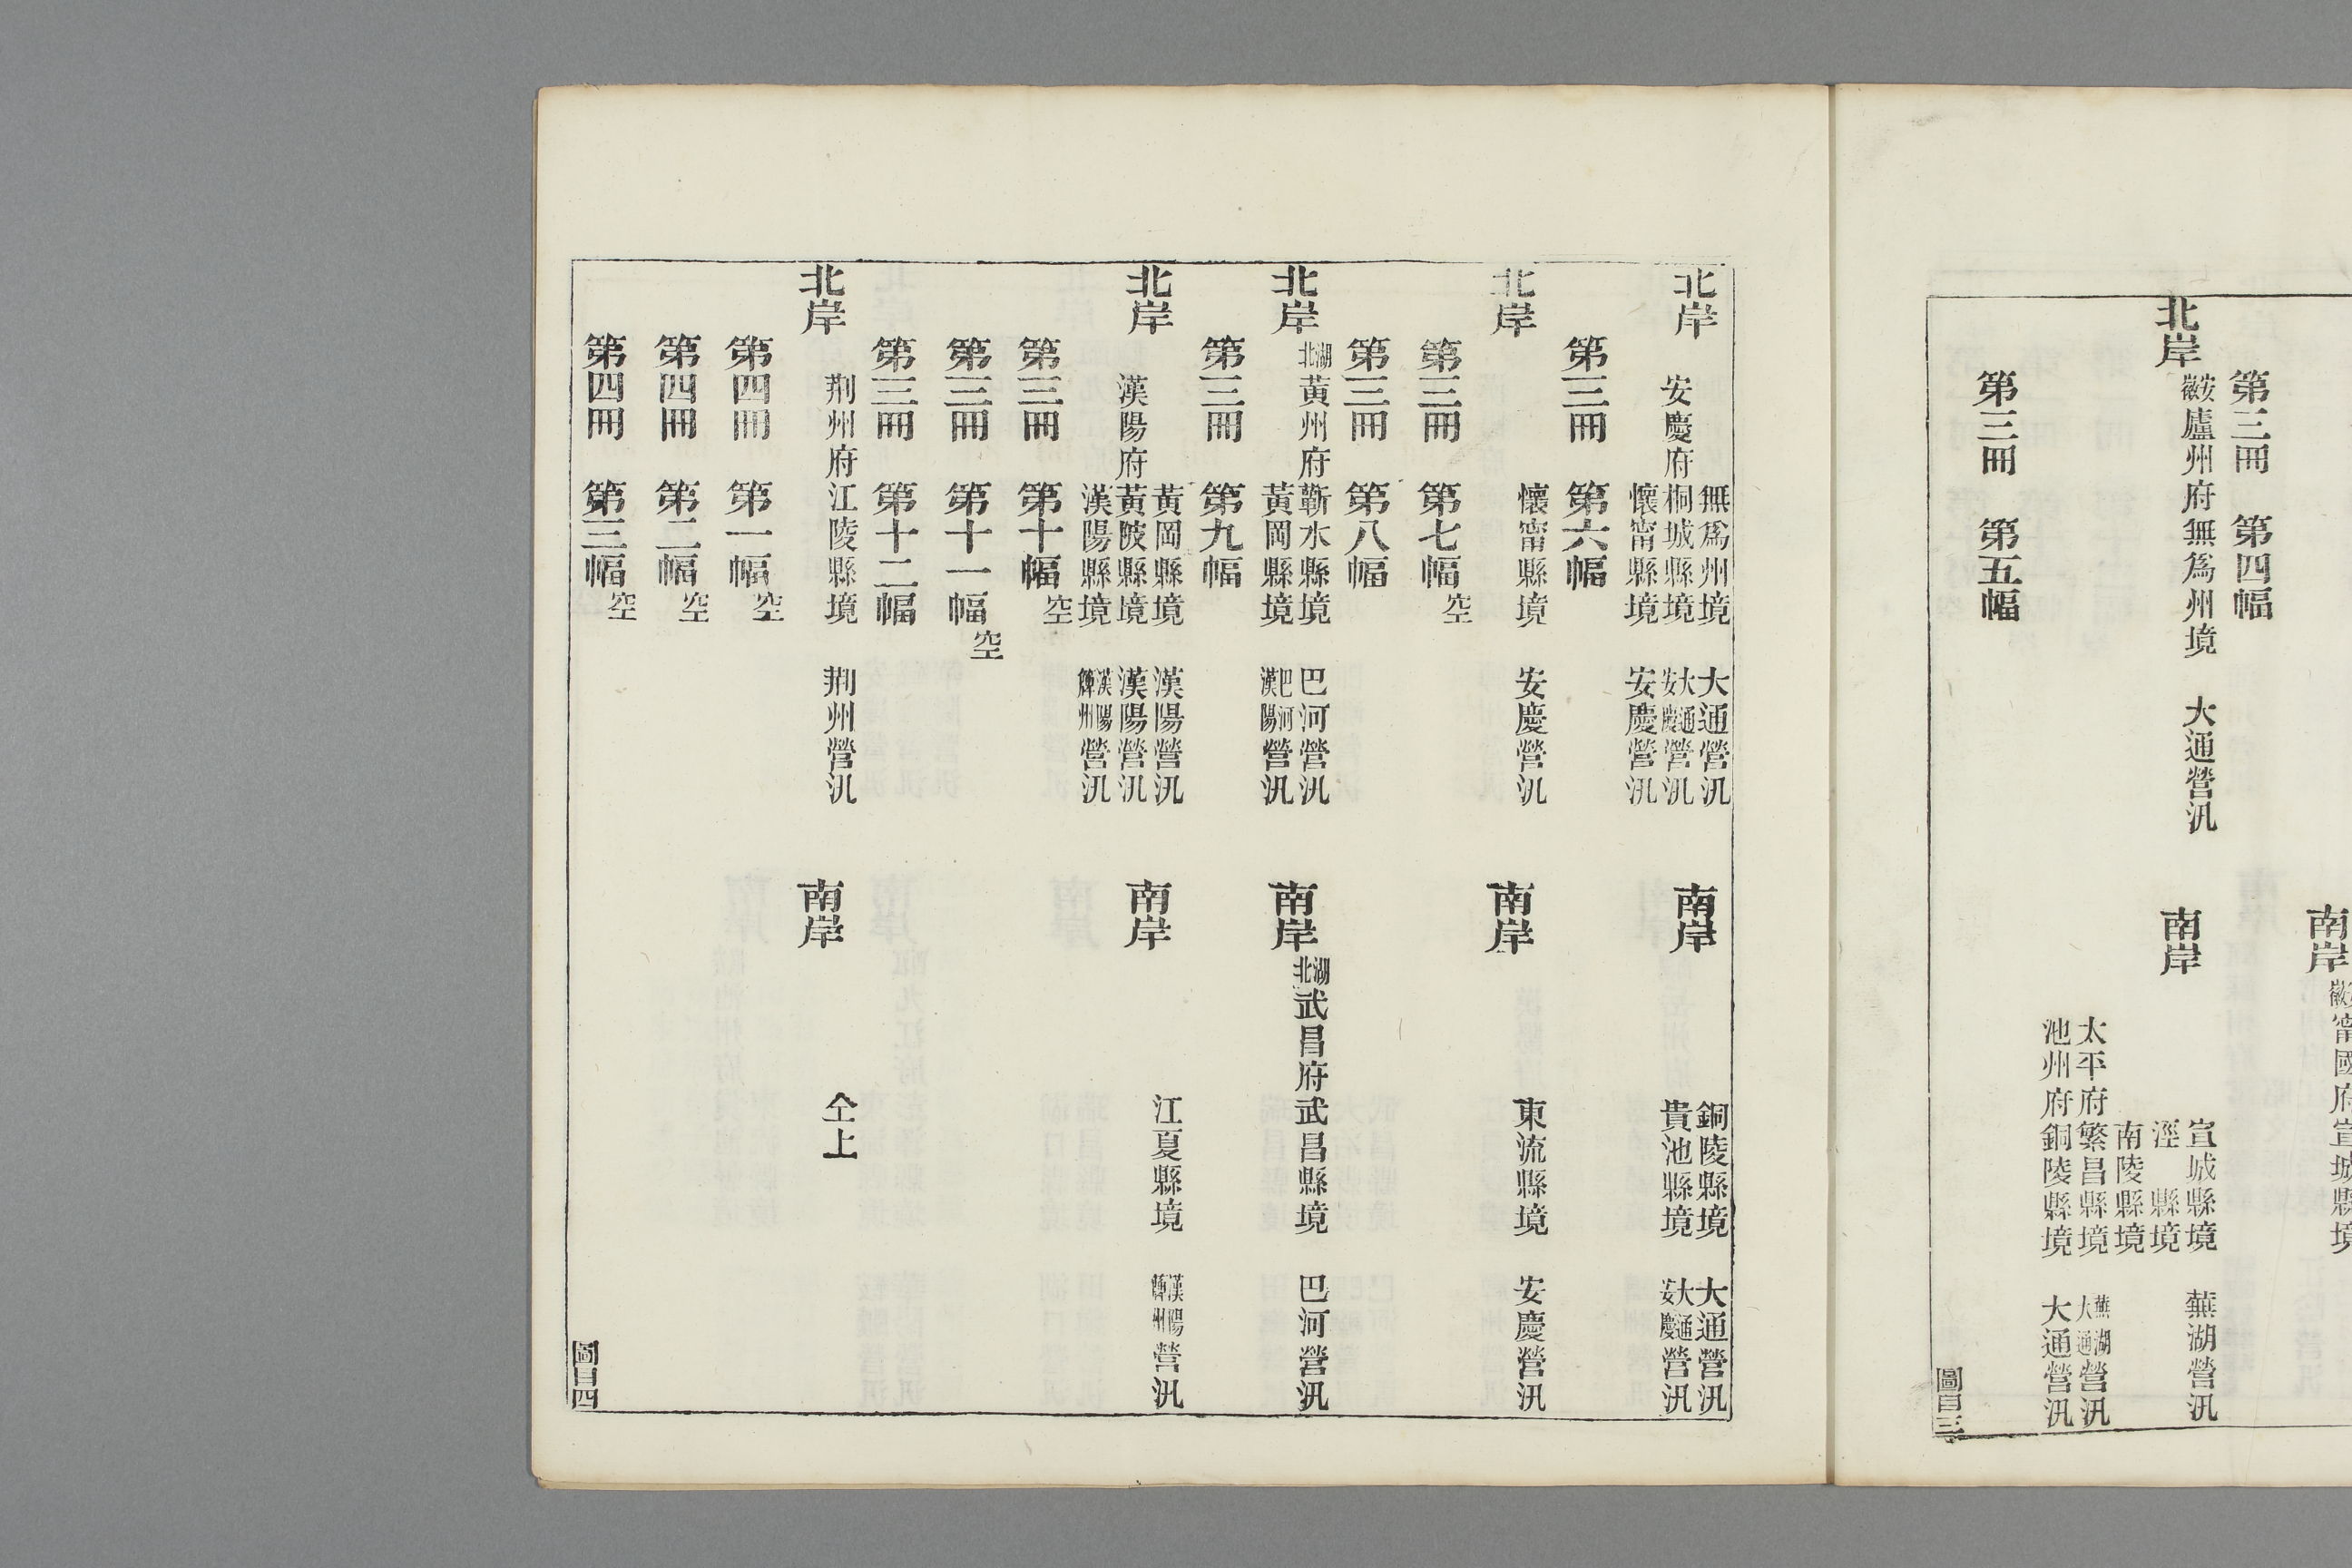 南岸 安徽甯國府宣城縣境
第三冊 第四幅
北岸 安徽廬州府無爲州境 大通營汛 南岸 宣城縣境 蕪湖營汛
涇縣境
南陵縣境
太平府繁昌縣境 蕪湖大通營汛
池州府銅陵縣境 大通營汛
第三冊 第五幅
圖目三
北岸 安慶府 無爲州境 大通營汛 南岸 銅陵縣境 大通營汛
桐城縣境 大通安慶營汛 貴池縣境 大通安慶營汛
懷甯縣境 安慶營汛
第三冊 第六幅
北岸 懷甯縣境 安慶營汛 南岸 東流縣境 安慶營汛
第三冊 第七幅 空
第三冊 第八幅
北岸 湖北黃州府 蘄水縣境 巴河營汛 南岸 湖北武昌府武昌縣境 巴河營汛
黃岡縣境 巴河漢陽營汛
第三冊 第九幅
北岸 漢陽府 黃岡縣境 漢陽營汛 南岸 江夏縣境 漢陽簰州營汛
黃陂縣境 漢陽營汛
漢陽縣境 漢陽簰州營汛
第三冊 第十幅 空
第三冊 第十一幅 空
第三冊 第十二幅
北岸 荆州府江陵縣境 荆州營汛 南岸 仝上
第四冊 第一幅 空
第四冊 第二幅 空
第四冊 第三幅 空
圖目四